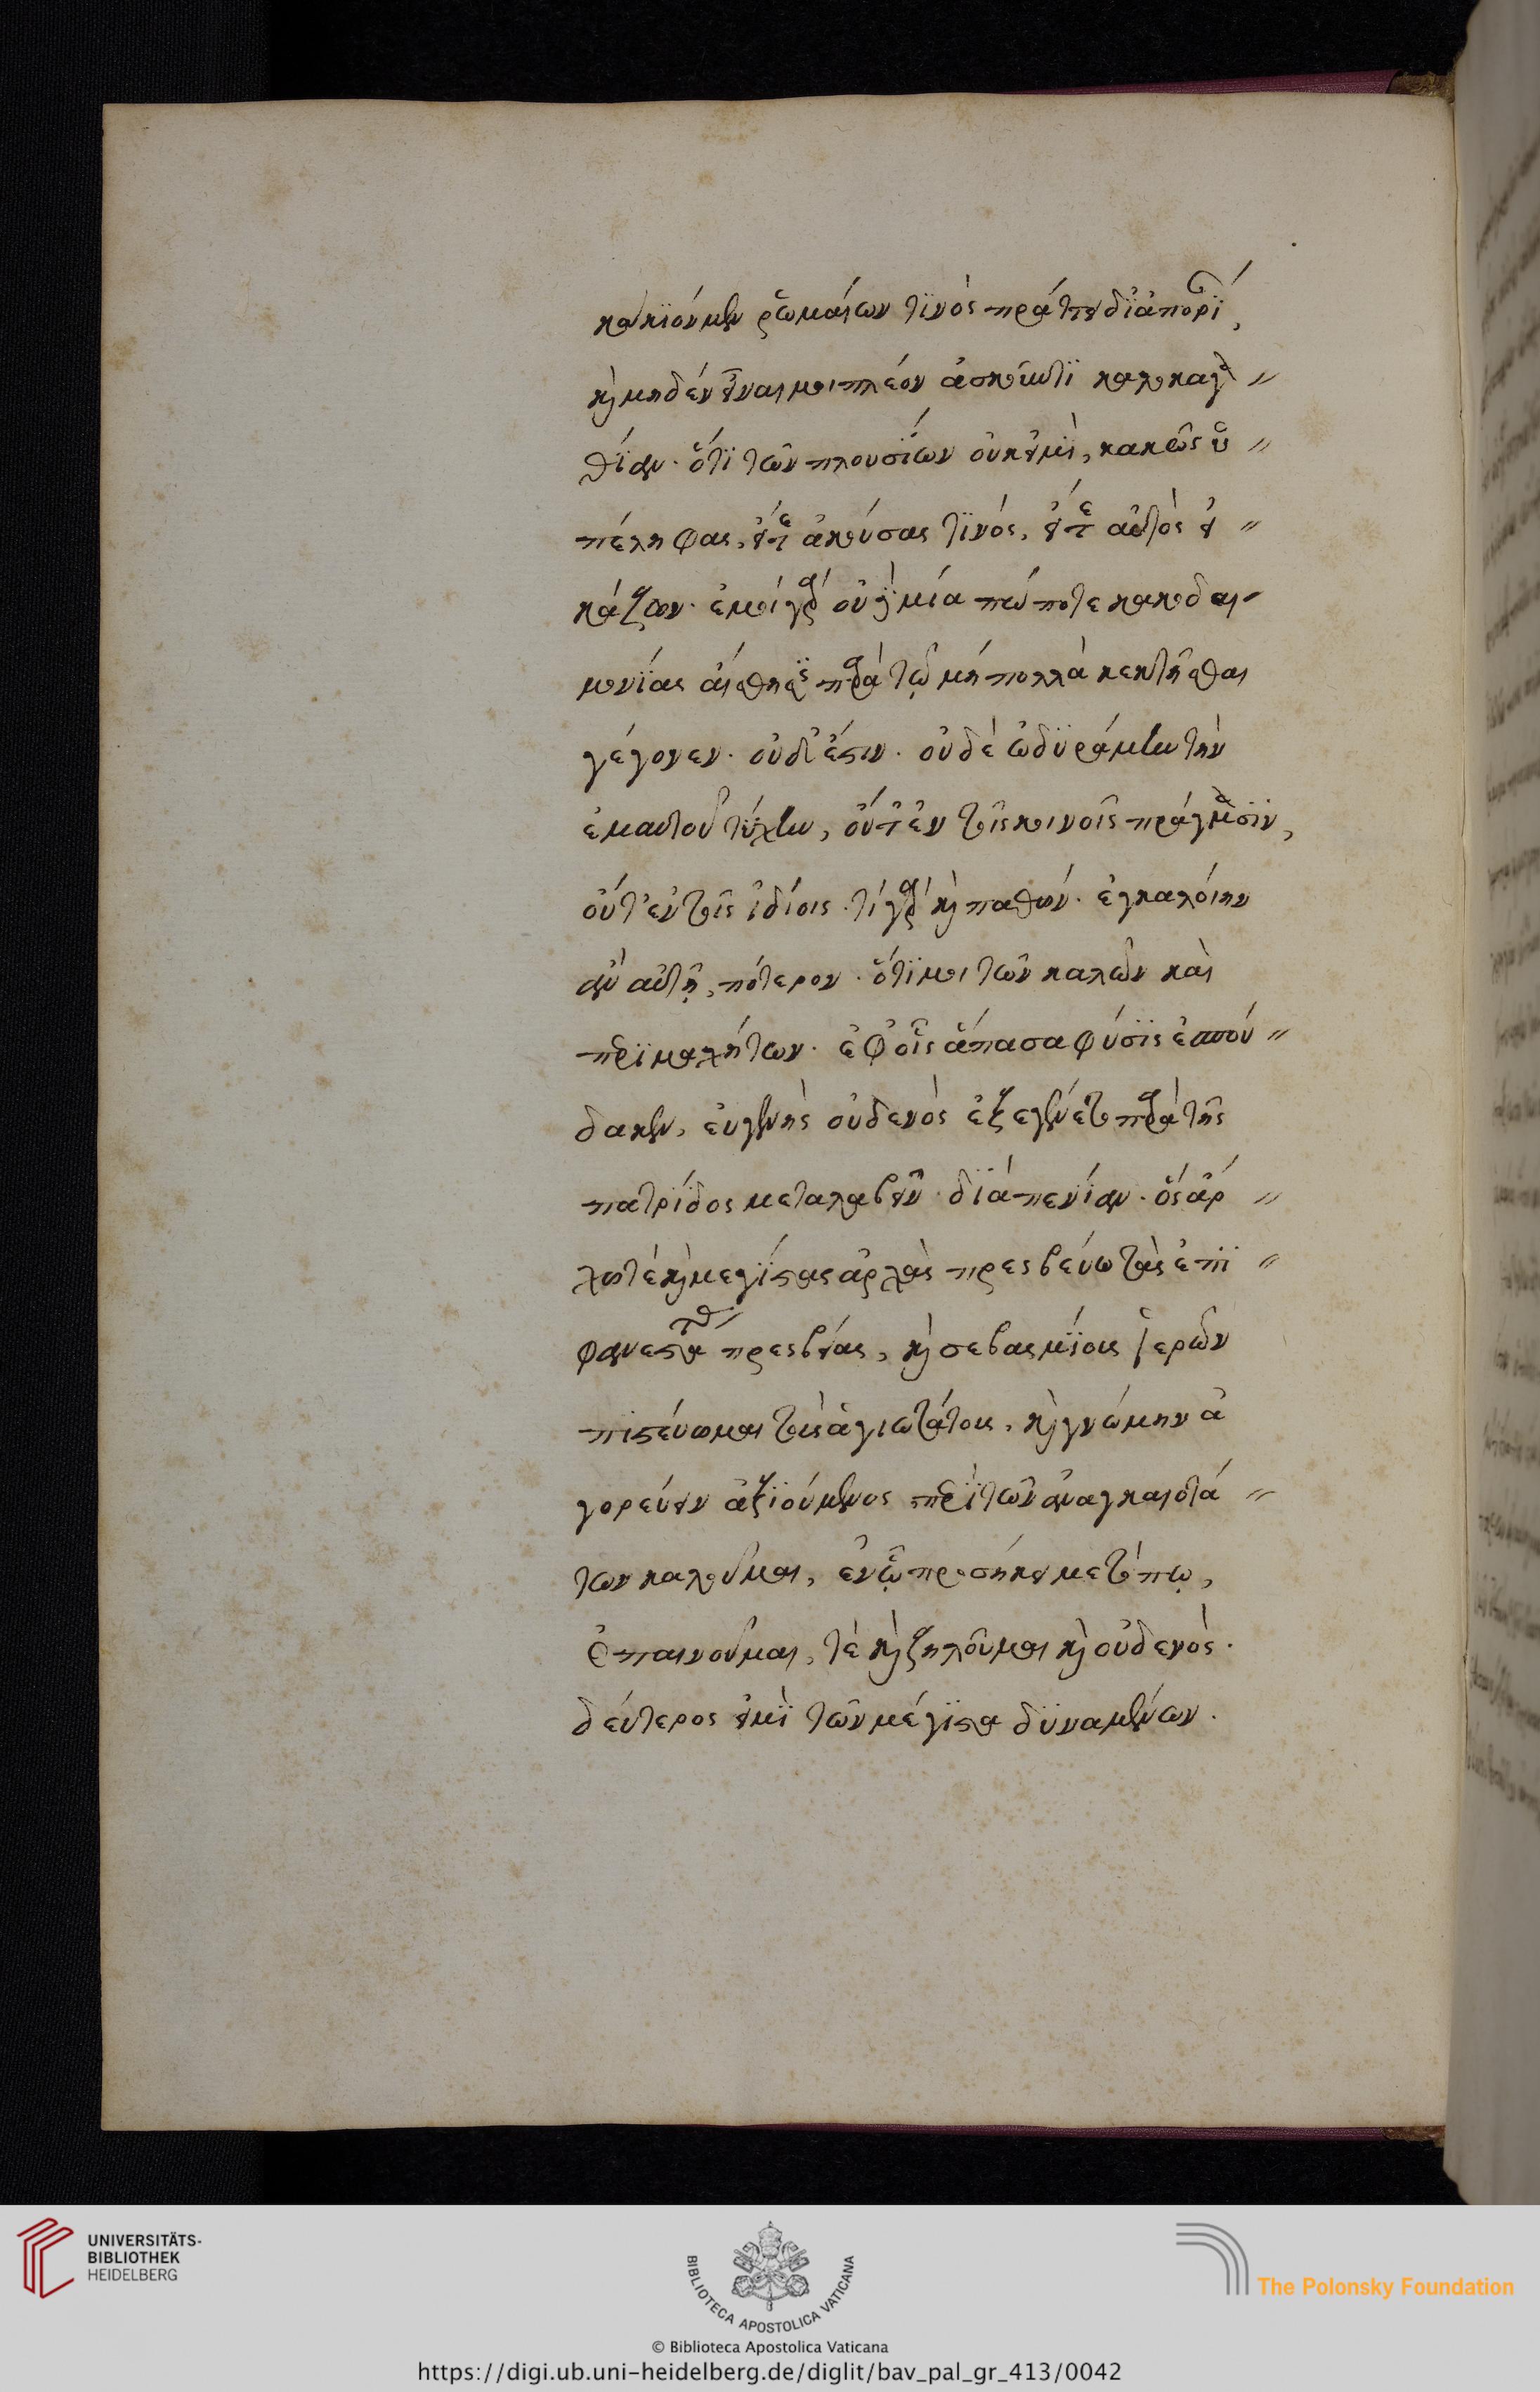 κακϊόνμεν ῥωμαίων τϊνὸς πράττειν δϊ ἀπορΐ,
κὶ μηδέν εἶναι μοι πλέον ἀσκοῦντϊ καλοκαγα〃
θίαν. ὅτϊ τῶν πλουσΐων οὐκ εἰμὶ, κακῶς ὑ〃
πέληφας, εἴτε ἀκούσας τϊνὸς, εἴτε αὐτὸς εἰ〃
κάζων. ἐμοὶ γὰρ οὐδεμία πώποτε κακοδαι-
μονΐας αἴσθησϊς παρὰ τῷ μὴ πολλὰ κεκτῆσθαι
γέγονεν. οὐδ' ἔστιν. οὐδὲ ὠδϋράμην τὴν
ἐμαυτοῦ τύχην, οὔτ' ἐν τοῖς κοινοῖς πράγμασϊν,
οὔτ' ἐν τοῖς ἰδίοις. τί γὰρ κὶ παθών. ἐγκαλοίην
ἂν αὐτῇ, πότερον. ὅτϊ μοι τῶν καλῶν καὶ
περϊμαχήτων. ἐφ' οἷς ἅπασα φύσϊς ἐσπού〃
δακεν, εὐγενὴς οὐδενὸς ἐξεγένετο παρὰ τῆς
πατρΐδος μεταλαβεῖν. δϊὰ πενΐαν. ὅς ἄρ〃
χω τὲ κὶ μεγΐστας ἀρχὰς πρεσβεύω τὰς ἐπϊ〃
φανεστάτ πρεσβείας, κὶ σεβασμΐοις ἱερῶν
πϊστεύομαι τοῖς ἁγιωτάτοις, κὶ γνώμην ἀ
γορεύειν ἀξϊούμενος περὶ τῶν ἀναγκαιοτά〃
των καλοῦμαι, ἐν ᾧ προσήκει με τόπῳ,
ἐπαινοῦμαι, τὲ κὶ ζηλοῦμαι κὶ οὐδενὸς.
δεύτερος εἰμὶ τῶν μέγϊστα δϋναμένων.
UNIVERSITÄTS-
BIBLIOTHEK
HEIDELBERG
BIBLIOTECA APOSTOLICA VATICANA
The Polonsky Foundation
© Biblioteca Apostolica Vaticana
https://digi.ub.uni-heidelberg.de/diglit/bav_pal_gr_413/0042